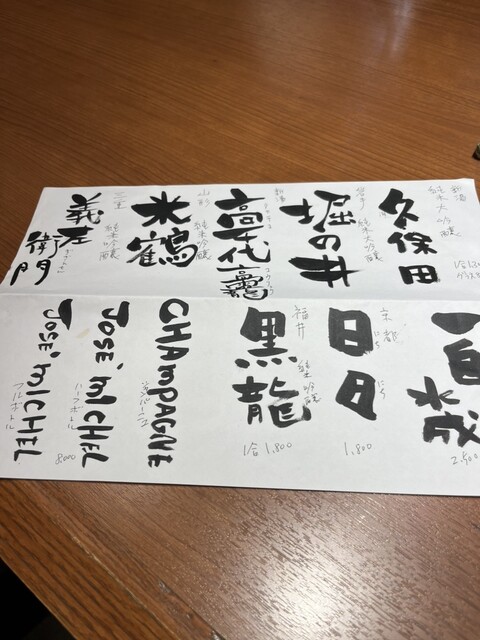 新潟
純米大吟醸
久保田
岩手
純米吟醸
堀の井
新潟
高千代
山形
純米吟醸
米鶴
三重
純米吟醸
義左衛門
白水成
2,500
京都
日日
にち
にち
1,800
福井
黒龍
1合 1,800
CHAMPAGNE
シャンパーニュ
JOSE' MICHEL
ハーフボトル
8000
JOSE' MICHEL
フルボトル